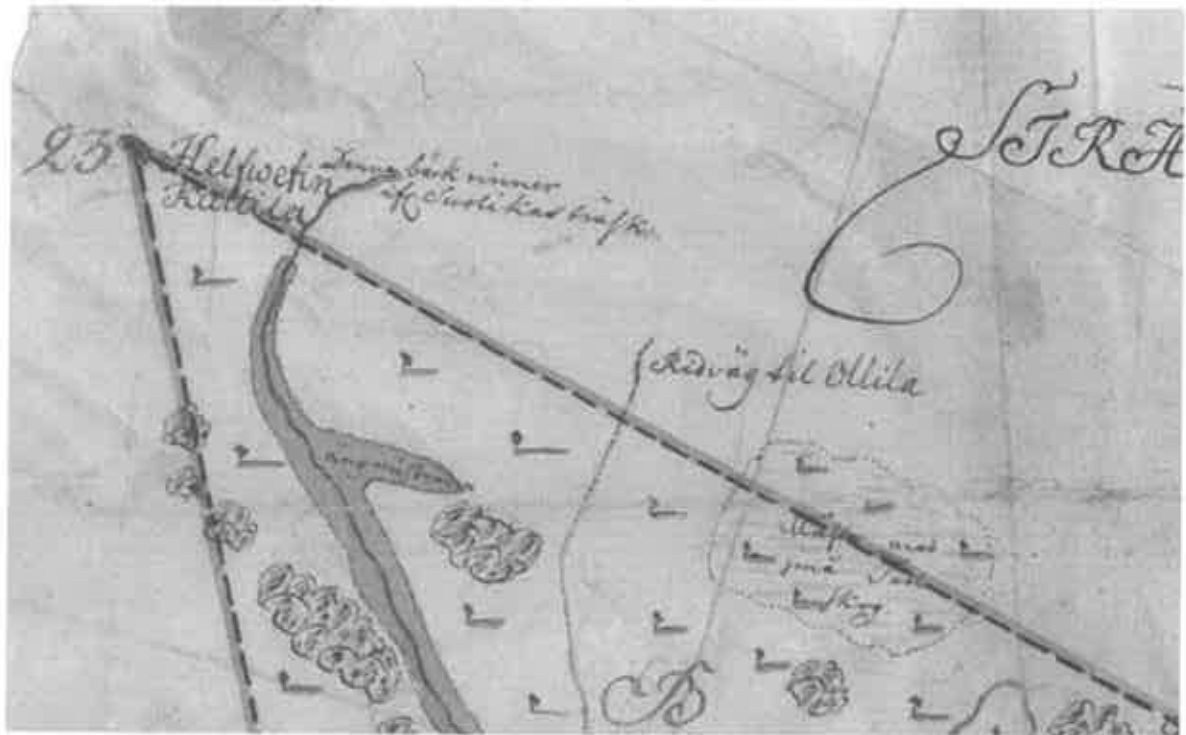 23
Hellwetin
Kattila
Denna bäck rinner
af Suoli kas träsk
STRÄ
Ridväg til Ollila
med
små
skog
B